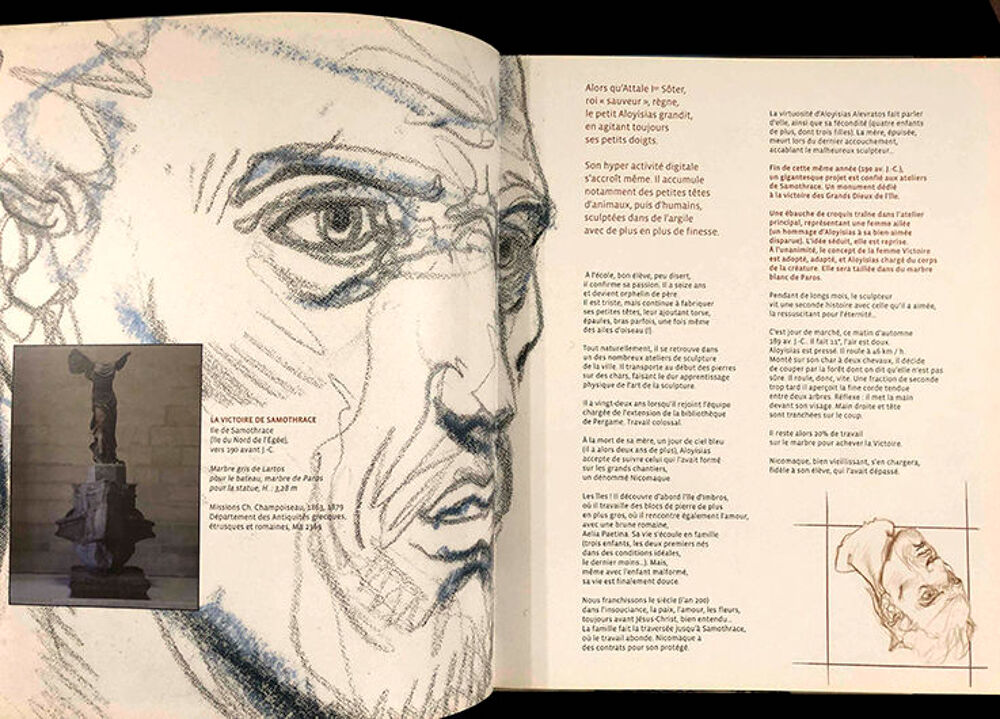 LA VICTOIRE DE SAMOTHRACE
Ile de Samothrace
(île du Nord de l'Egée),
vers 190 avant J.-C.
Marbre gris de Lartos
pour le bateau, marbre de Paros
pour la statue, H. : 3,28 m
Missions Ch. Champoiseau, 1863, 1879
Département des Antiquités grecques,
étrusques et romaines, Ma 2369
Alors qu'Attale Ier Sôter,
roi « sauveur », règne,
le petit Aloyisias grandit,
en agitant toujours
ses petits doigts.
Son hyper activité digitale
s'accroît même. Il accumule
notamment des petites têtes
d'animaux, puis d'humains,
sculptées dans de l'argile
avec de plus en plus de finesse.
À l'école, bon élève, peu disert,
il confirme sa passion. Il a seize ans
et devient orphelin de père.
Il est triste, mais continue à fabriquer
ses petites têtes, leur ajoutant torse,
épaules, bras parfois, une fois même
des ailes d'oiseau (!)
Tout naturellement, il se retrouve dans
un des nombreux ateliers de sculpture
de la ville. Il transporte au début des pierres
sur des chars, faisant le dur apprentissage
physique de l'art de la sculpture.
Il a vingt-deux ans lorsqu'il rejoint l'équipe
chargée de l'extension de la bibliothèque
de Pergame. Travail colossal.
À la mort de sa mère, un jour de ciel bleu
(il a alors deux ans de plus), Aloyisias
accepte de suivre celui qui l'avait formé
sur les grands chantiers,
un dénommé Nicomaque
Les îles ! Il découvre d'abord l'île d'Imbros,
où il travaille des blocs de pierre de plus
en plus gros, où il rencontre également l'amour,
avec une brune romaine,
Aelia Paetina. Sa vie s'écoule en famille
(trois enfants, les deux premiers nés
dans des conditions idéales,
le dernier moins...). Mais,
même avec l'enfant malformé,
sa vie est finalement douce.
Nous franchissons le siècle (l'an 200)
dans l'insouciance, la paix, l'amour, les fleurs,
toujours avant Jésus-Christ, bien entendu...
La famille fait la traversée jusqu'à Samothrace,
où le travail abonde. Nicomaque a
des contrats pour son protégé.
La virtuosité d'Aloyisias Alevratos fait parler
d'elle, ainsi que sa fécondité (quatre enfants
de plus, dont trois filles). La mère, épuisée,
meurt lors du dernier accouchement,
accablant le malheureux sculpteur...
Fin de cette même année (190 av. J.-C.),
un gigantesque projet est confié aux ateliers
de Samothrace. Un monument dédié
à la victoire des Grands Dieux de l'île.
Une ébauche de croquis traîne dans l'atelier
principal, représentant une femme ailée
(un hommage d'Aloyisias à sa bien aimée
disparue). L'idée séduit, elle est reprise.
À l'unanimité, le concept de la femme Victoire
est adopté, adapté, et Aloyisias chargé du corps
de la créature. Elle sera taillée dans du marbre
blanc de Paros.
Pendant de longs mois, le sculpteur
vit une seconde histoire avec celle qu'il a aimée,
la ressuscitant pour l'éternité...
C'est jour de marché, ce matin d'automne
189 av. J.-C. Il fait 11°, l'air est doux.
Aloyisias est pressé. Il roule à 46 km / h.
Monté sur son char à deux chevaux, il décide
de couper par la forêt dont on dit qu'elle n'est pas
sûre. Il roule, donc, vite. Une fraction de seconde
trop tard il aperçoit la fine corde tendue
entre deux arbres. Réflexe : il met la main
devant son visage. Main droite et tête
sont tranchées sur le coup.
Il reste alors 20% de travail
sur le marbre pour achever la Victoire.
Nicomaque, bien vieillissant, s'en chargera,
fidèle à son élève, qui l'avait dépassé.